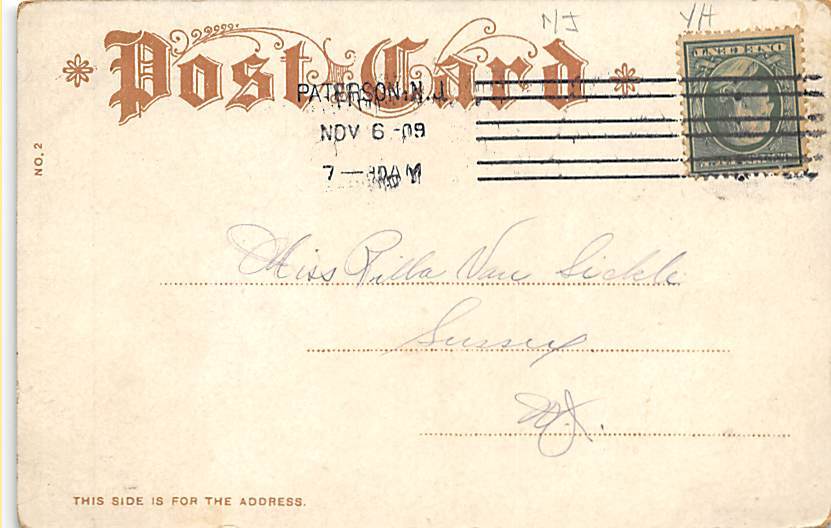 NJ YH
Post Card
PATERSON. N.J.
NOV 6 -09
7 — 30 AM
NO. 2
ONE CENT
Miss Rilla Van Sickle
Sussex
N.J.
THIS SIDE IS FOR THE ADDRESS.